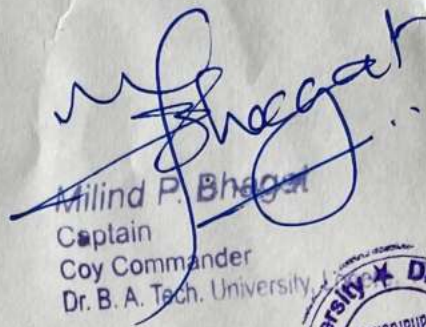 Bhagat
Milind P. Bhagat
Captain
Coy Commander
Dr. B. A. Tech. University,